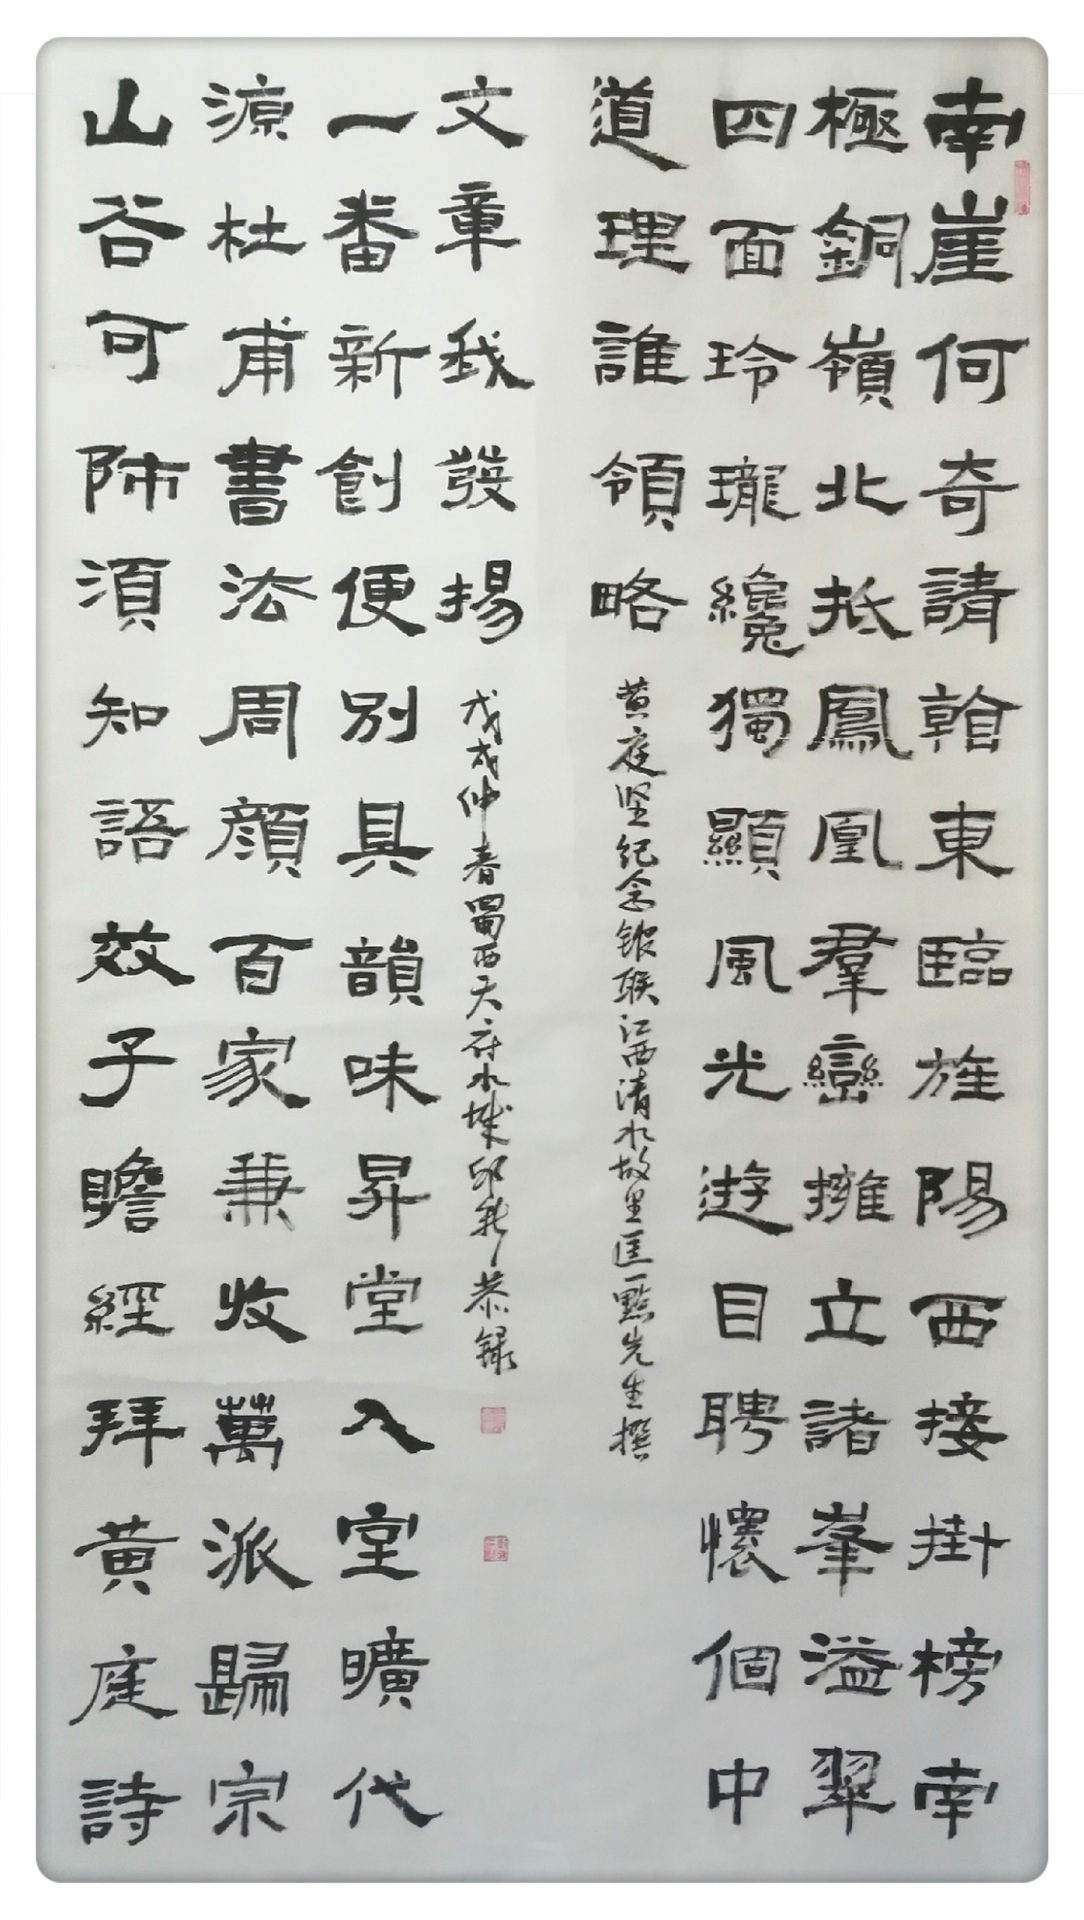 南崖何奇請看東臨旌陽西接掛榜南
極銅嶺北抵鳳凰羣巒擁立諸峯溢翠
四面玲瓏纔獨顯風光遊目聘懷個中
道理誰領略
黄庭坚纪念馆联江西清水故里匡一點先生撰
山谷可師須知語效子瞻經拜黃庭詩
源杜甫書法周顏百家兼收萬派歸宗
一番新創便別具韻味昇堂入室曠代
文章我發揚
戊戌仲春蜀西天府水城邱恭録